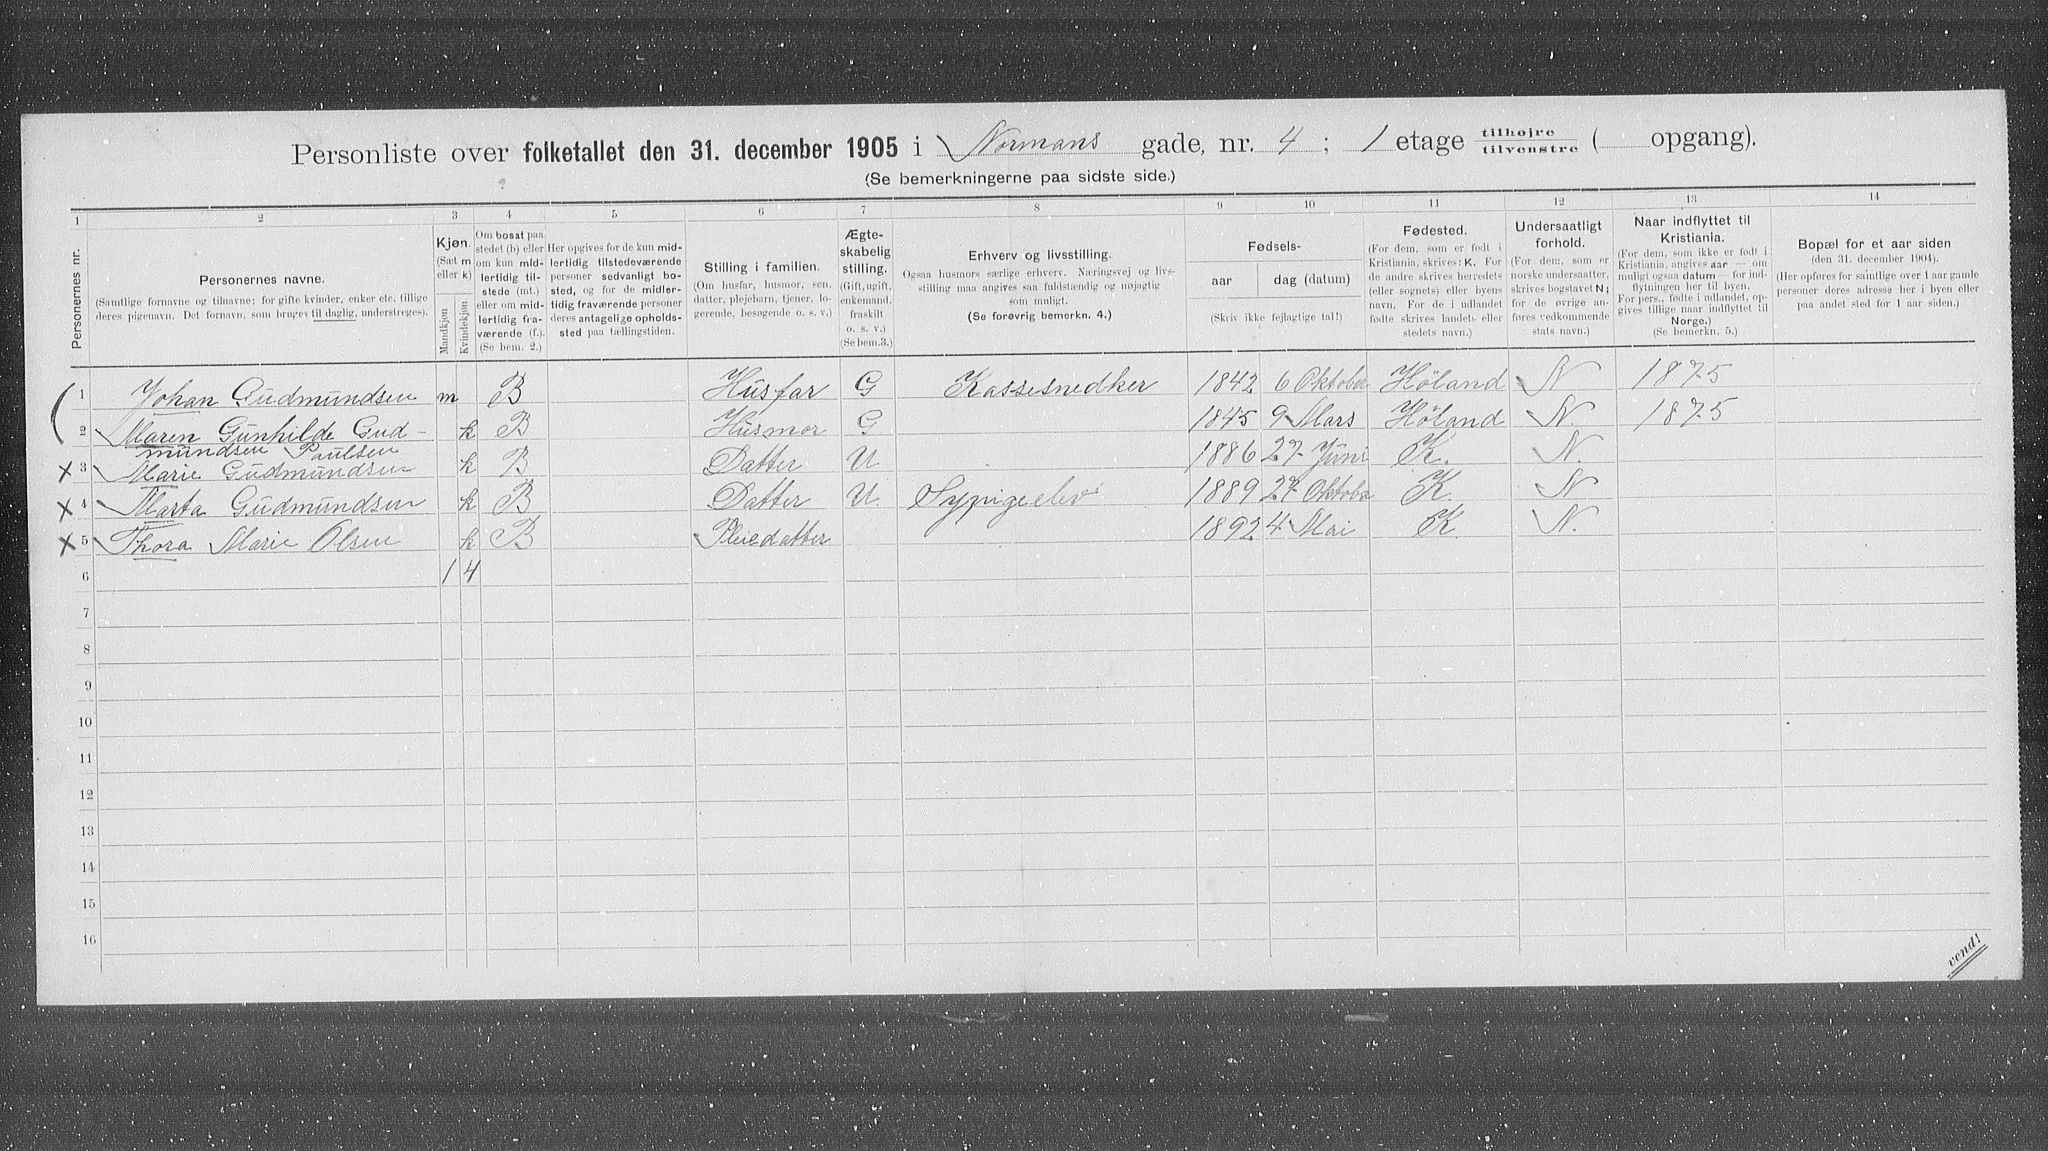 Personliste over folketallet den 31. december 1905 i Normans gade, nr. 4 ; 1 etage tilhøjre / tilvenstre ( opgang).
(Se bemerkningerne paa sidste side.)
1 2 3 4 5 6 7 8 9 10 11 12 13 14
Personernes nr.
Personernes navne.
(Samtlige fornavne og tilnavne; for gifte kvinder, enker etc. tillige
deres pigenavn. Det fornavn, som bruges til daglig, understreges).
Kjøn.
(Sæt m
eller k)
Mandkjøn
Kvindekjøn
Om bosat paa
stedet (b) eller
om kun mid-
lertidig til-
stede (mt.)
eller om mid-
lertidig fra-
værende (f.).
(Se bem. 2.)
Her opgives for de kun mid-
lertidig tilstedeværende
personer sedvanligt bo-
sted, og for de midler-
tidig fraværende personer
deres antagelige opholds-
sted paa tællingstiden.
Stilling i familien.
(Om husfar, husmor, søn,
datter, plejebarn, tjener, lo-
gerende, besøgende o. s. v.)
Ægte-
skabelig
stilling.
(Gift, ugift,
enkemand,
fraskilt
o. s. v.)
(Se bem.3.)
Erhverv og livsstilling.
Ogsaa husmors særlige erhverv. Næringsvej og livs-
stilling maa angives saa fuldstændig og nøjagtig
som muligt.
(Se forøvrig bemerkn. 4.)
Fødsels-
aar dag (datum)
(Skriv ikke fejlagtige tal!)
Fødested.
(For dem, som er født i
Kristiania, skrives: K. For
de andre skrives herredets
(eller sognets) eller byens
navn. For de i udlandet
fødte skrives landets eller
stedets navn.)
Undersaatligt
forhold.
(For dem, som er
norske undersaatter,
skrives bogstavet N;
for de øvrige an-
føres vedkommende
stats navn.)
Naar indflyttet til
Kristiania.
(For dem, som ikke er født i
Kristiania, angives aar — om
muligt ogsaa datum — for ind-
flytningen her til byen.
For pers., fødte i udlandet, op-
gives tillige naar indflyttet til
Norge.)
(Se bemerkn. 5.)
Bopæl for et aar siden
(den 31. december 1904).
(Her opføres for samtlige over 1 aar gamle
personer deres adresse her i byen eller
paa andet sted for 1 aar siden.)
1 Johan Gudmundsen m B Husfar G Kassesnedker 1842 6 Oktober Höland N 1875
2 Maren Gunhilde Gud- k B Husmor G 1845 9 Mars Höland N. 1875
mundsen Paulsen
3 Marie Gudmundsen k B Datter U. 1886 27 Juni K. N.
4 Marta Gudmundsen k B Datter U. Sypigeelev 1889 27 Oktober K. N
5 Thora Marie Olsen k B Pleiedatter 1892 4 Mai K. N.
6 1 4
7
8
9
10
11
12
13
14
15
16
vend!